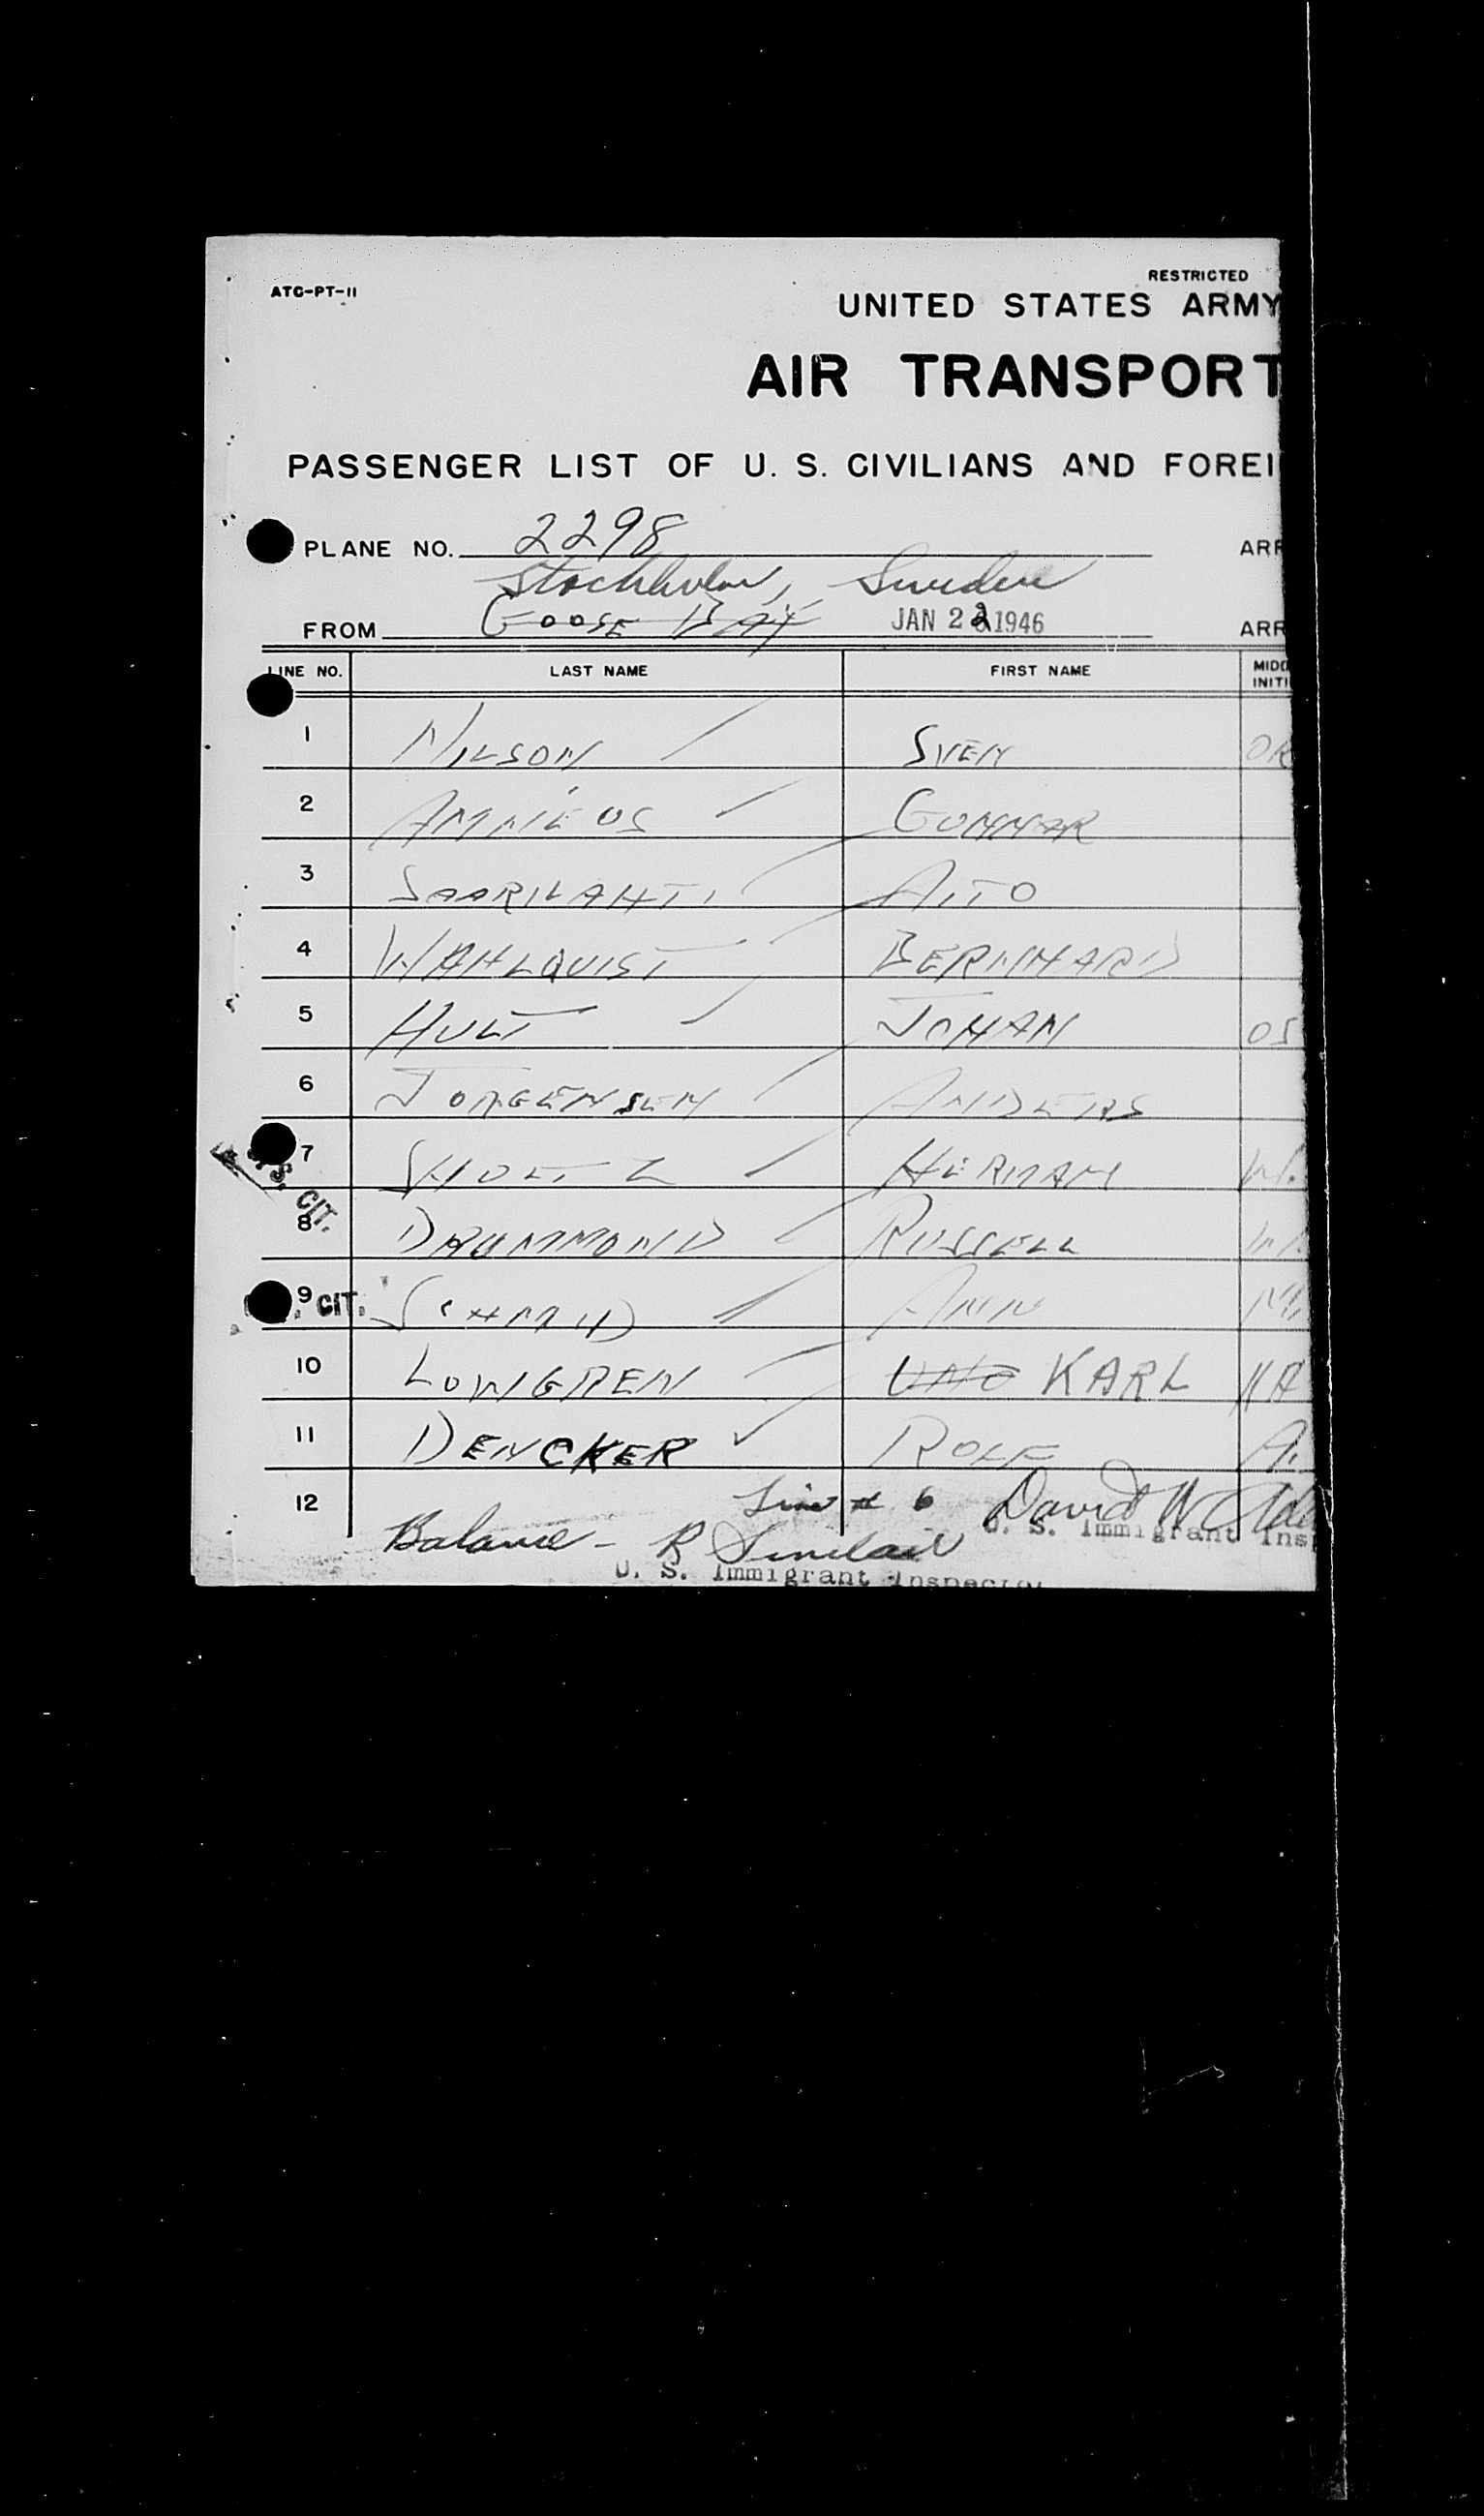 RESTRICTED
ATC-PT-11
UNITED STATES ARMY
AIR TRANSPORT
PASSENGER LIST OF U. S. CIVILIANS AND FOREI
PLANE NO. 2298 ARR
Stockholm, Sweden
FROM GOOSE BAY JAN 22 1946 ARR
LINE NO. LAST NAME FIRST NAME MIDD INITI
1 NILSON SVEN OR
2 GUNNAR
3 SAARILAHTI AITO
4 WAHLQUIST BERNHARD
5 HULT JOHAN OS
6 JORGENSEN ANDERS
7 HERMAN
U.S. CIT.
8 DRUMMOND RUSSELL
9 CIT. SCHMID ANN
10 LOWGREN UNO KARL
11 DENCKER ROLF A.
12 Line # 6 David W
U. S. Immigrant Ins
Balance - R Sinclair
U. S. Immigrant Inspector